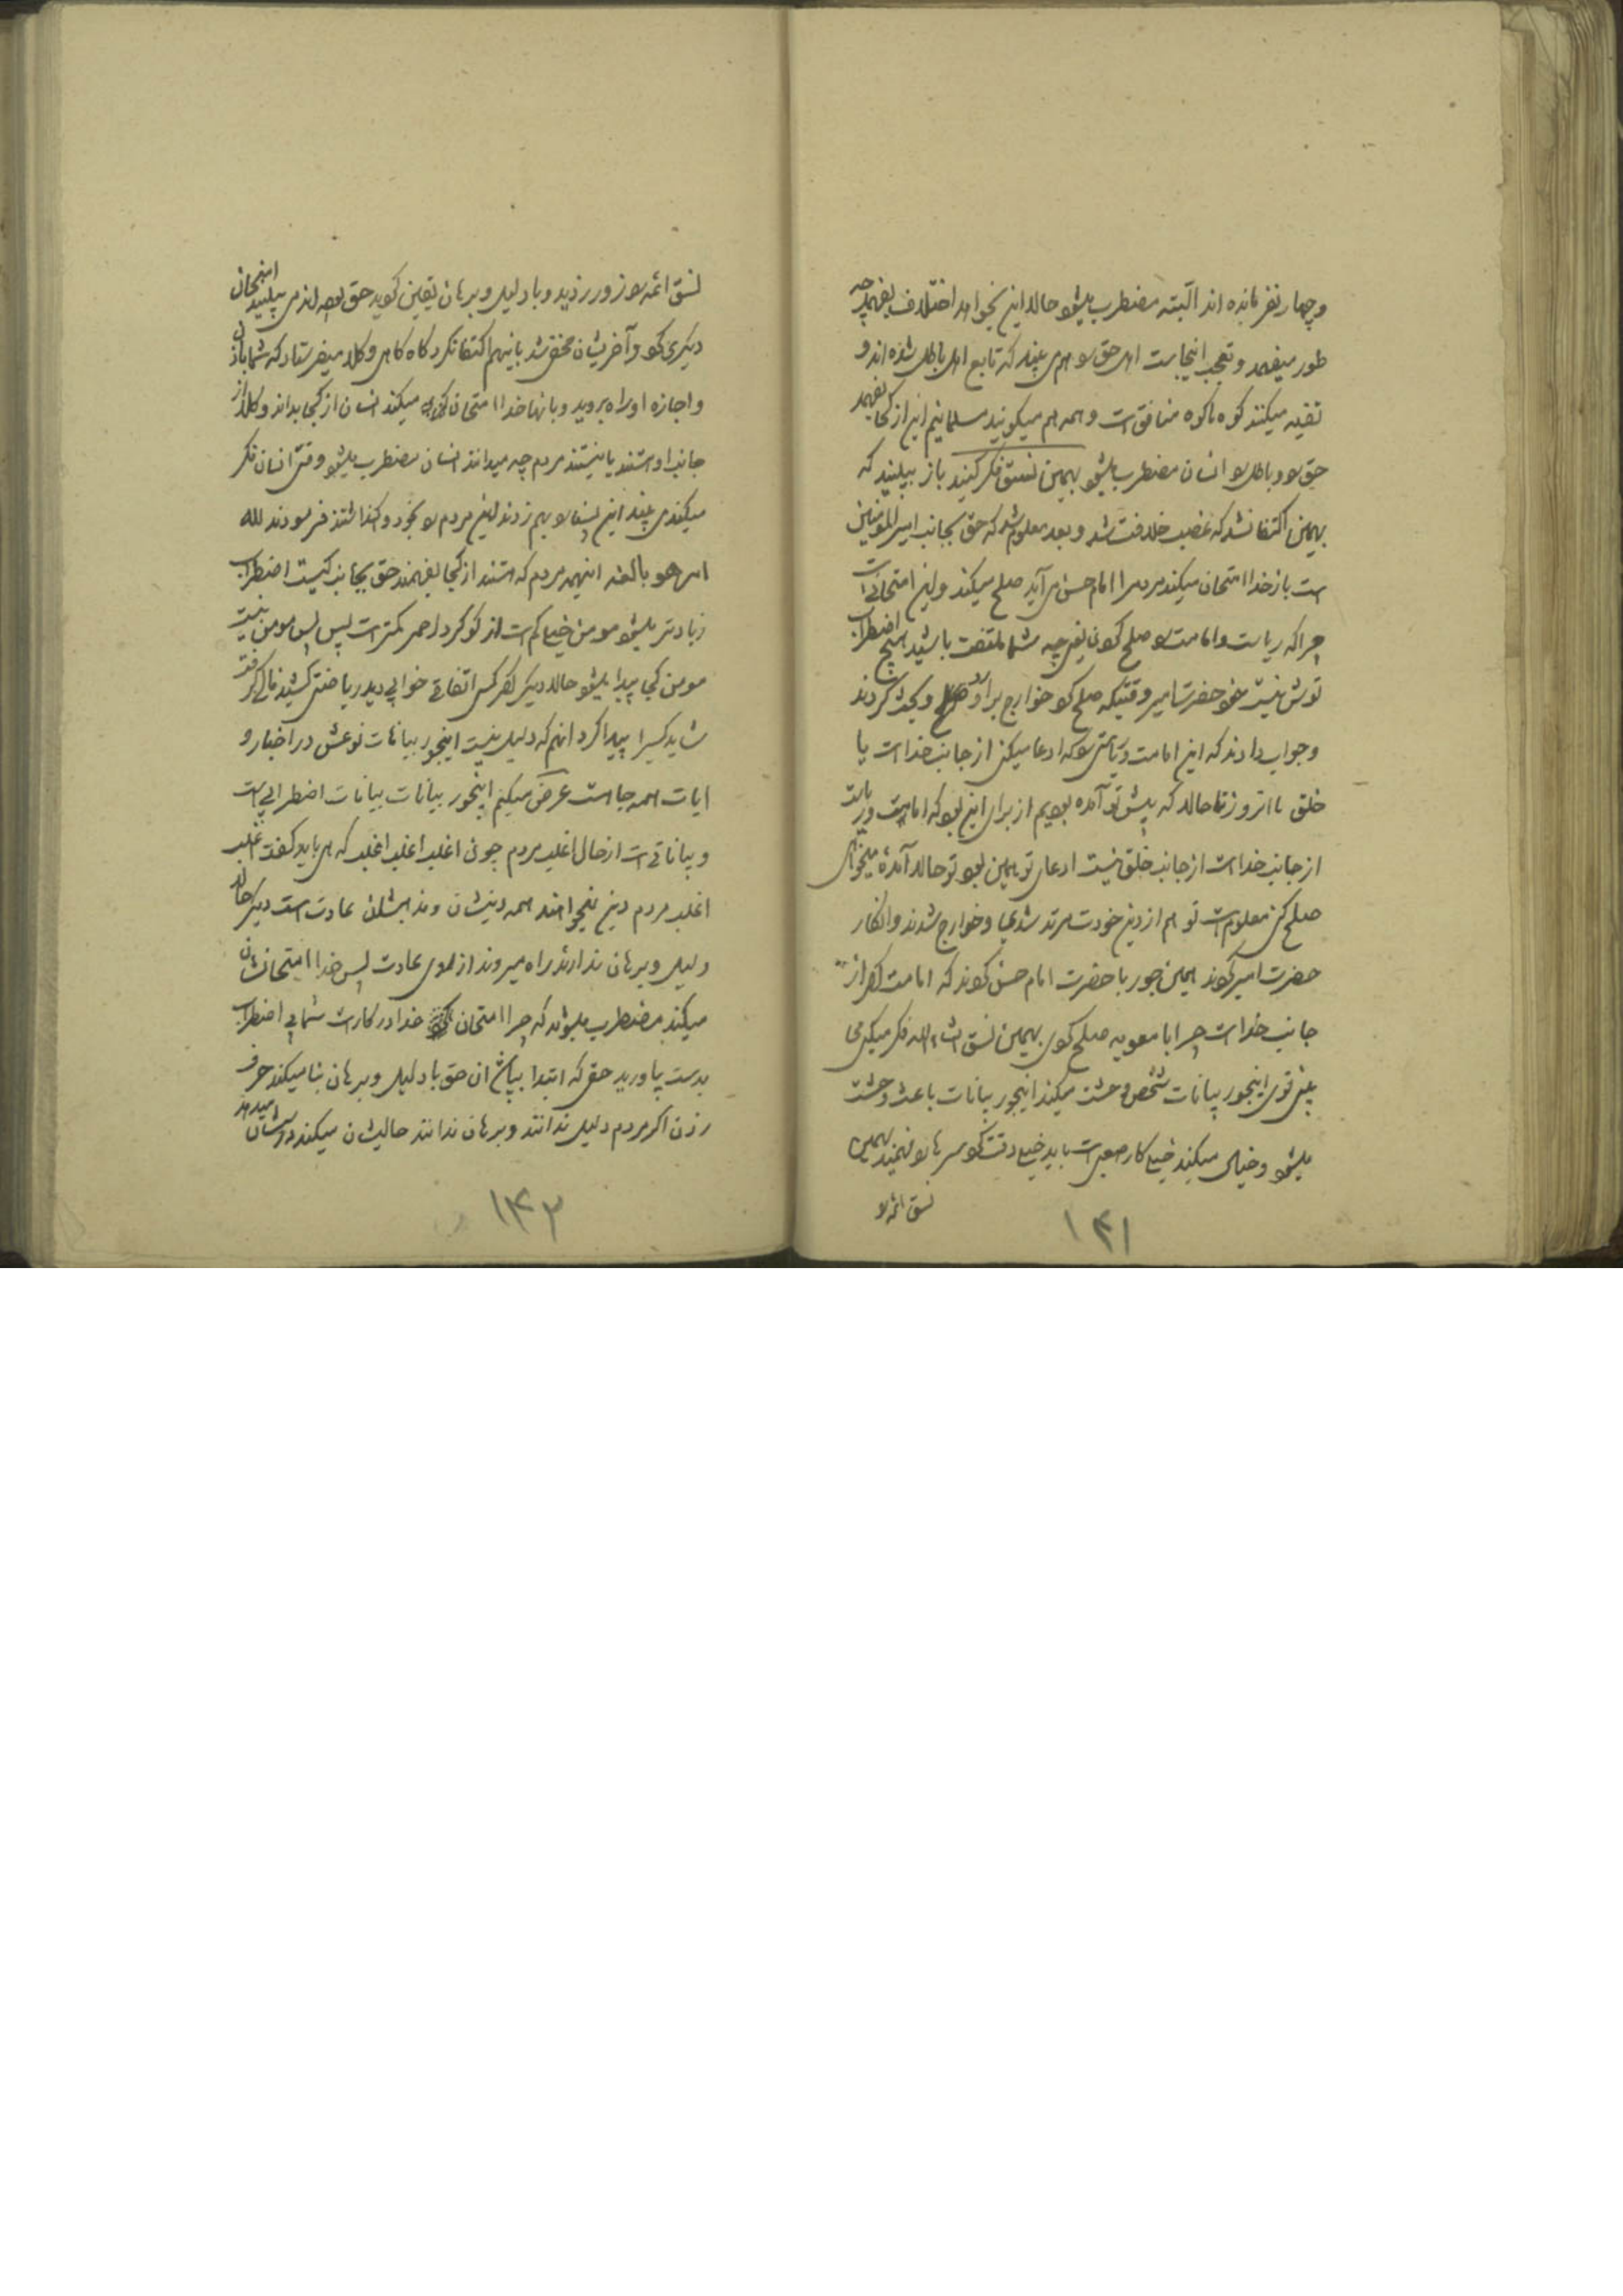 وچهار نفر مانده اند البته مضطرب میشود حالا این نمیخواهد اختلاف بفهمد چه
طور میفهمد و تعجب اینجاست اهل حق را هم می بیند که تابع اهل باطل شده اند و
تقیه میکنند کوه کوه منافق است و همه هم میگویند مسلمانیم این از کجا بفهمد
حق را و باطل را انسان مضطرب میشود بهمین نسق فکر کنید باز ببینید که
بهمین اکتفا نشد که غصب خلافت شد و بعد معلوم شد که حق بجانب امیر المؤمنین
است باز خدا امتحان میکند مردم را امام حسن می آید صلح میکند و این امتحانی است
چرا که ریاست و امامت را صلح کردن یعنی چه شما ملتفت باشید هیچ اضطراب
توش نیست خود حضرت امیر وقتیکه صلح کرد خوارج بر او وبحث کردند
وجواب دادند که این امامت و ریاستی را که ادعا میکنی از جانب خداست یا
خلق ما امروز تا حالا که پیش تو آمده بودیم از برای این بود که امامت و ریاست
از جانب خداست از جانب خلق نیست ادعای تو همین بود تو حالا آمدهٔ میخواهی
صلح کنی معلوم است تو هم از دین خودت مرتد شدی و خوارج شدند و انکار
حضرت امیر کردند همین جور با حضرت امام حسن کردند که امامت اگر از
جانب خداست چرا با معویه صلح کردی بهمین نسق انشاء الله فکر میکنی می
بینی توی اینجور بیانات شخص وحشت میکند اینجور بیانات باعث وحشت
میشود وخیال میکند خیلی کار صعبی است باید خیلی دقت کرد سرها را فهمید بهمین
نسق ائمه را
۱۳۱
نسق ائمه را زور زدید و با دلیل و برهان یقین کردید حق بوده اند می بینید امتحان
دیگری کرد و آخریشان مخفی شد باینهم اکتفا نکرد گاه گاهی وکلا میفرستاد که شما باذن
و اجازه او راه بروید و بآنها خدا امتحان میکند انسان از کجا بداند وکلا از
جانب او هستند یا نیستند مردم چه میدانند انسان مضطرب میشود وقتی انسان فکر
میکند می بیند این بساط را بهم زدند این مردم را بخود وا گذاشتند فرمودند لله
امر هو بالغه اینهمه مردم که هستند از کجا بفهمند حق بجانب کیست اضطراب
زیادتر میشود مومن خیلی کم است از کوگرد احمر کمتر است پس پس مومن نیست
مومن کجا پیدا میشود حالا دیگر اگر کسی اتفاقی خوابی دید ریاضتی کشید فالی گرفت
شاید کسی را پیدا کرد انهم که دلیل نیست اینجور بیانات نوعش در اخبار و
ایات همه جا هست عرض میکنم اینجور بیانات بیانات اضطرابی است
و بیاناتی است از حال اغلب مردم چون اغلب اغلب اغلب که می باید گفت اغلب
اغلب مردم دین نمیخواهند همه دینشان و مذهبشان عادت است دیگر حالا
دلیل و برهان ندارند راه میروند از روی عادت پس خدا امتحانشان
میکند مضطرب میشوند که چرا امتحان خدا در کار است شما بی اضطراب
بدست بیاورید حق که ابتدا ان حق با دلیل و برهان بنا میکند حرف
زدن اگر مردم دلیل ندانند و برهان ندانند حالیشان میکند
۱۳۲